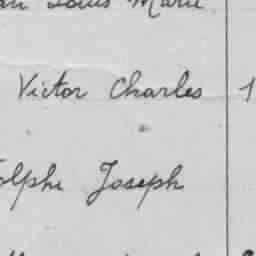 Louis Marie
Victor Charles 1
olphe Joseph